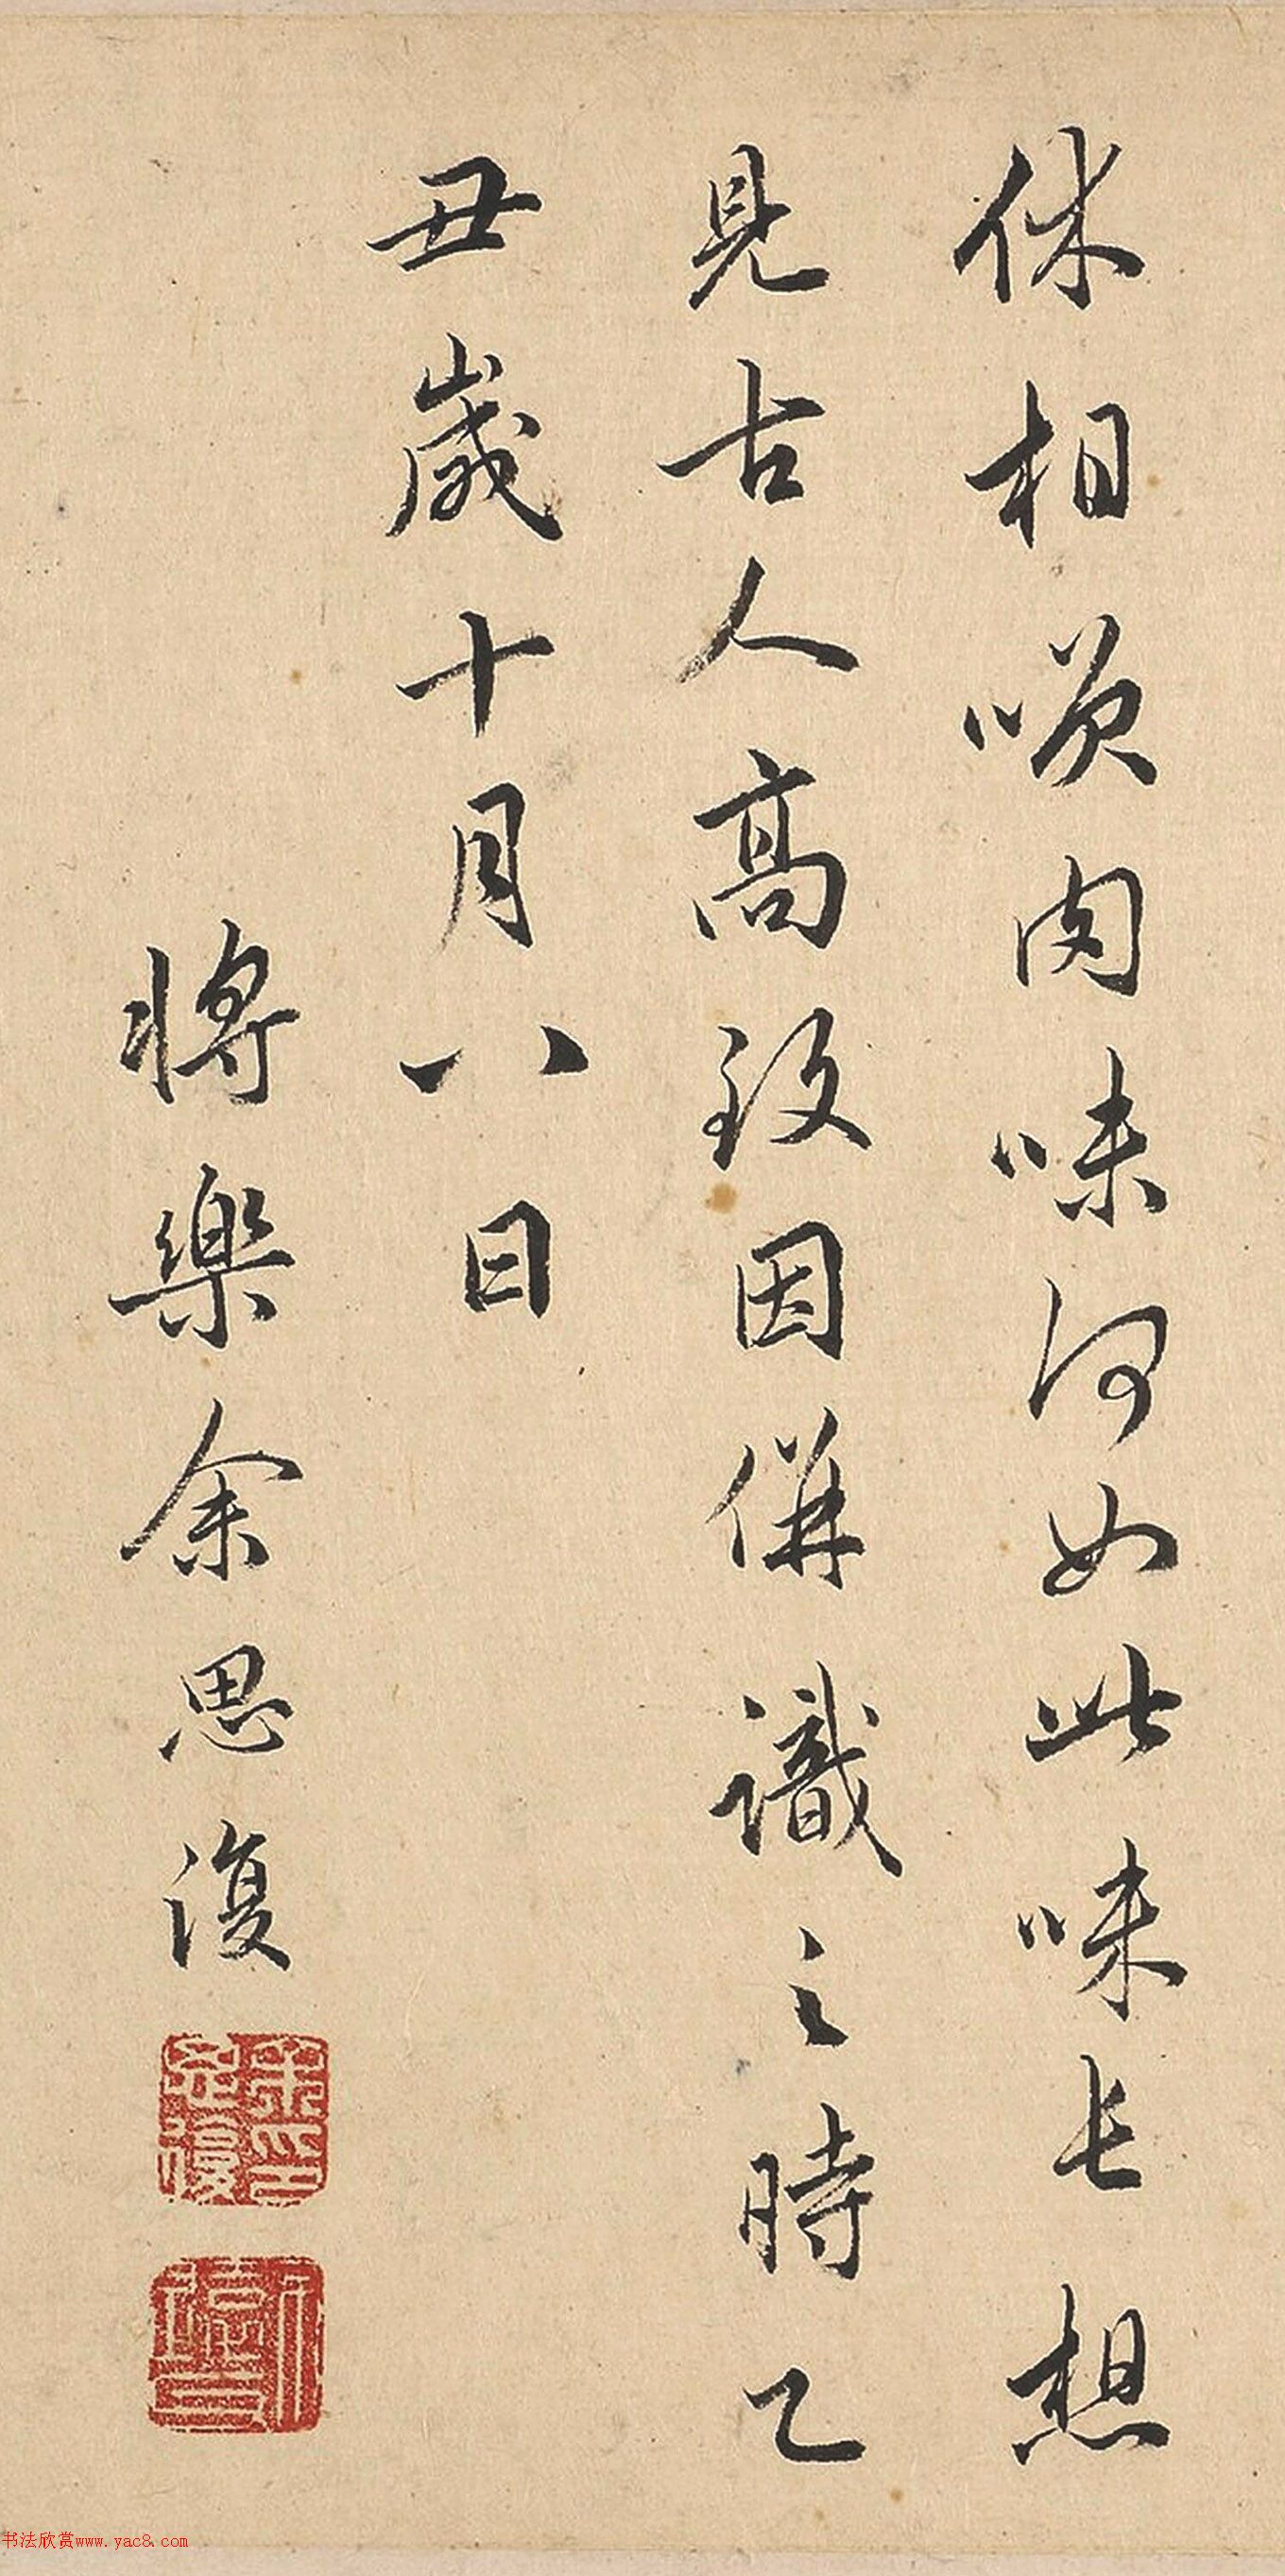 休相唤肉味何如此味长想
見古人高致因併識之時乙
丑歲十月八日
將樂余思復
余印思復
书法欣赏www.yac8.com